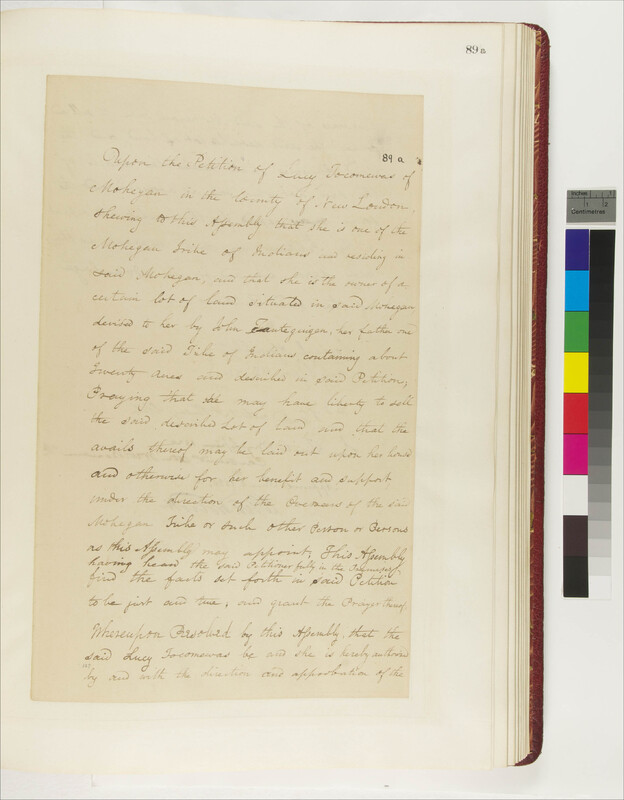 89 a
89 a
Upon the Petition of Lucy Tocomewas of
Mohegan in the County of New London,
Shewing to this Assembly that she is one of the
Mohegan Tribe of Indians and residing in
said Mohegan, and that she is the owner of a
certain lot of land situated in said Mohegan
devised to her by John Tantequigen, her father one
of the said Tribe of Indians containing about
Twenty Acres and described in said Petition,
Praying that she may have liberty to sell
the said described Lot of land and that the
avails thereof may be laid out upon her house
and otherwise for her benefit and support
under the direction of the Overseers of the said
Mohegan Tribe or such other Person or Persons
as this Assembly may appoint; This Assembly
having heard the said Petitioner fully in the Premises
find the facts set forth in said Petition
to be just and true, and grant the Prayer thereof.
Whereupon Resolved by this Assembly, that the
said Lucy Tocomewas be and she is hereby authorised
by and with the direction and approbation of the
Inches
1
2
Centimetres